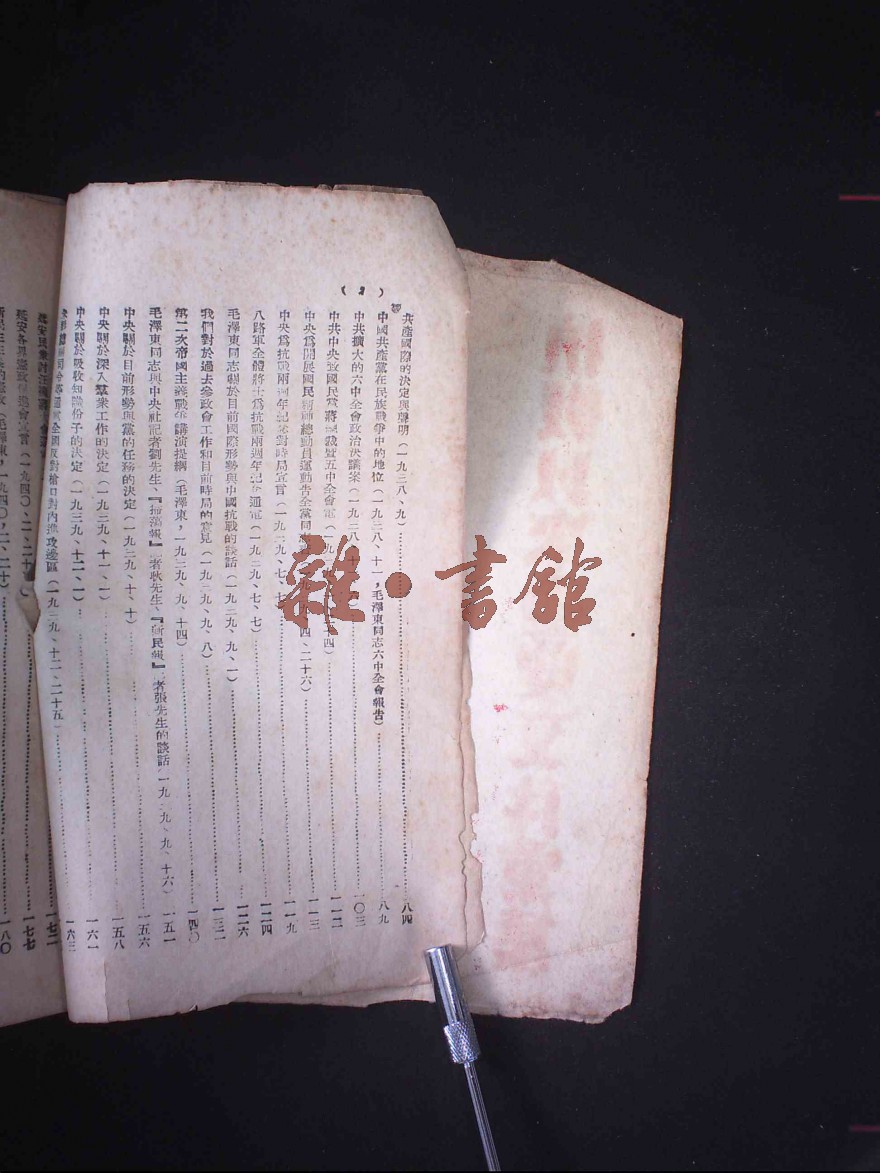 （2）
共產國際的決定與聲明（一九三八、九）……八四
中國共產黨在民族戰爭中的地位（一九三八、十一，毛澤東同志六中全會報告）……八九
中共擴大的六中全會政治決議案（一九三八、十一……一〇三
中共中央致國民黨蔣總裁暨五中全會電（一九三……四）……一一二
中央為開展國民精神總動員運動告全黨同志……四、二十六）……一一三
中央為抗戰兩週年紀念對時局宣言（一九三九、七、七）……一一九
八路軍全體將士為抗戰兩週年紀念通電（一九三九、七、七）……一二四
毛澤東同志關於目前國際形勢與中國抗戰的談話（一九三九、九、一）……一二六
我們對於過去參政會工作和目前時局的意見（一九三九、九、八）……一三一
第二次帝國主義戰爭講演提綱（毛澤東，一九三九、九、十四）……一四〇
毛澤東同志與中央社記者劉先生、『掃蕩報』記者耿先生、『新民報』記者張先生的談話（一九三九、九、十六）……一五一
中央關於目前形勢與黨的任務的決定（一九三九、十、十）……一五六
中央關於深入羣衆工作的決定（一九三九、十一、一）……一五八
中央關於吸收知識份子的決定（一九三九、十二、一）……一六一
全國反對槍口對內進攻邊區（一九三九、十二、二十五）……一六三
延安民衆討汪……一七二
延安各界憲政促進會宣言（一九四〇、二、二十）……一七七
新民主主義的憲政（毛澤東，一九四〇，二、二十）……一八〇
雜·書館